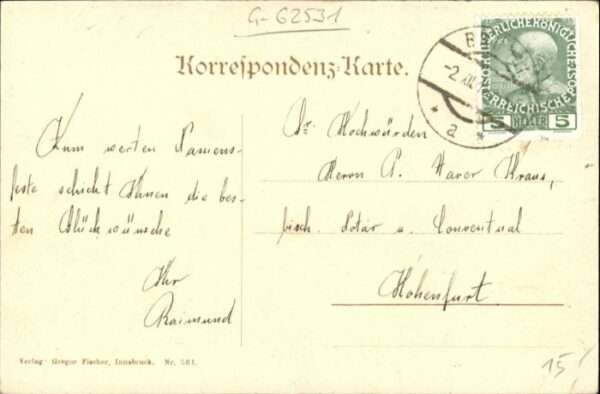 G-62531
Korrespondenz-Karte.
KAISERLICHE KÖNIGLICHE ÖSTERREICHISCHE POST
5 HELLER 5
a
Zum werten Namens-
feste schickt Ihnen die bes-
ten Glückwünsche
Ihr
Raimund
Sr. Hochwürden
Herrn P. Xaver Kraus,
bisch. Notar u. Conventual
Hohenfurt.
Verlag Gregor Fischer, Innsbruck. Nr. 561.
15!